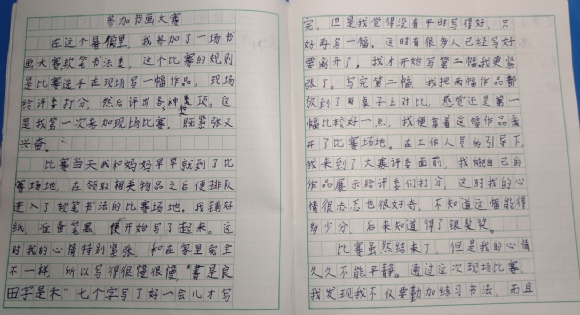 参加书画大赛
在这个暑假里，我参加了一场书
画大赛软笔书法类，这个比赛的规则
是比赛选手在现场写一幅作品，现场
给评委打分，然后评出各种奖项。这
是我第一次来加现场比赛，既紧张又
兴奋。
比赛当天我和妈妈早早就到了比
赛场地，在领取相关物品之后便排队
进入了软笔书法的比赛场地。我铺好
纸，准备笔墨，便开始写了起来。这
时我的心情特别紧张，和在家里完全
不一样，所以写得很慢很慢“書是良
田字是禾”七个字写了好一会儿才写
完，但是我觉得没有平时写得好，只
好再写一幅。这时有很多人已经写好
要离开了，我才开始写第二幅我更紧
张了。写完第二幅，我把两幅作品都
放到了桌子上对比，感觉还是第一
幅比较好一点，我便拿着这幅作品离
开了比赛场地。在工作人员的引导下，
我来到了大赛评委面前，我把自己的
作品展示给评委们打分，这时我的心
情很忐忑也很好奇，不知道这幅能得
多少分，后来知道得了银奖。
比赛虽然结束了，但是我的心情
久久不能平静。通过这次现场比赛，
我发现我不仅要勤加练习书法，而且